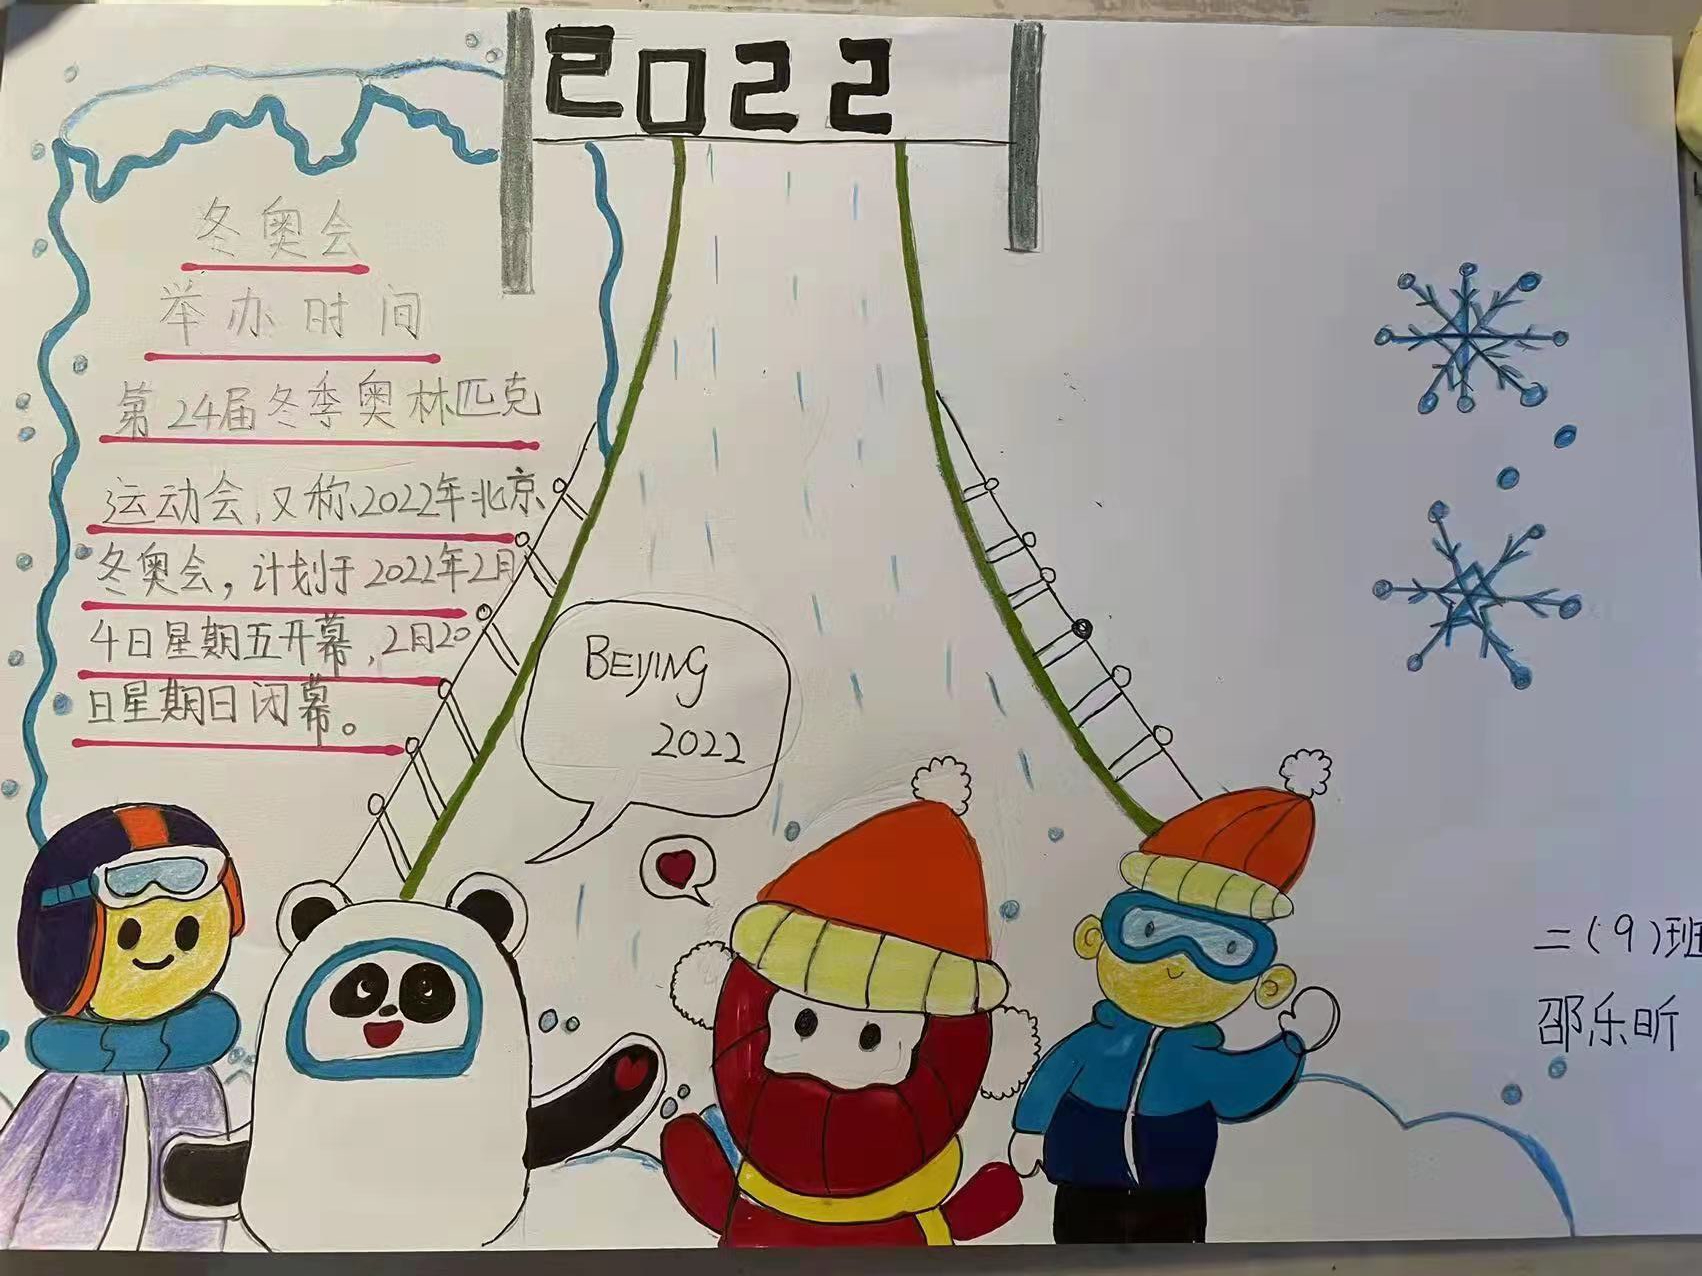 2022
冬奥会
举办时间
第24届冬季奥林匹克
运动会,又称2022年北京
冬奥会，计划于2022年2月
4日星期五开幕,2月20
日星期日闭幕。
BEIJING
2022
二(9)班
邵乐昕